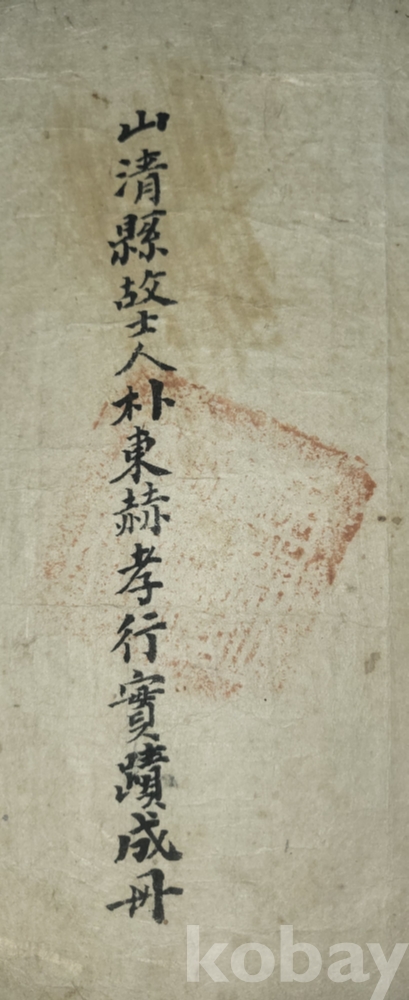 山清縣故士人朴東赫孝行實蹟成冊
kobay